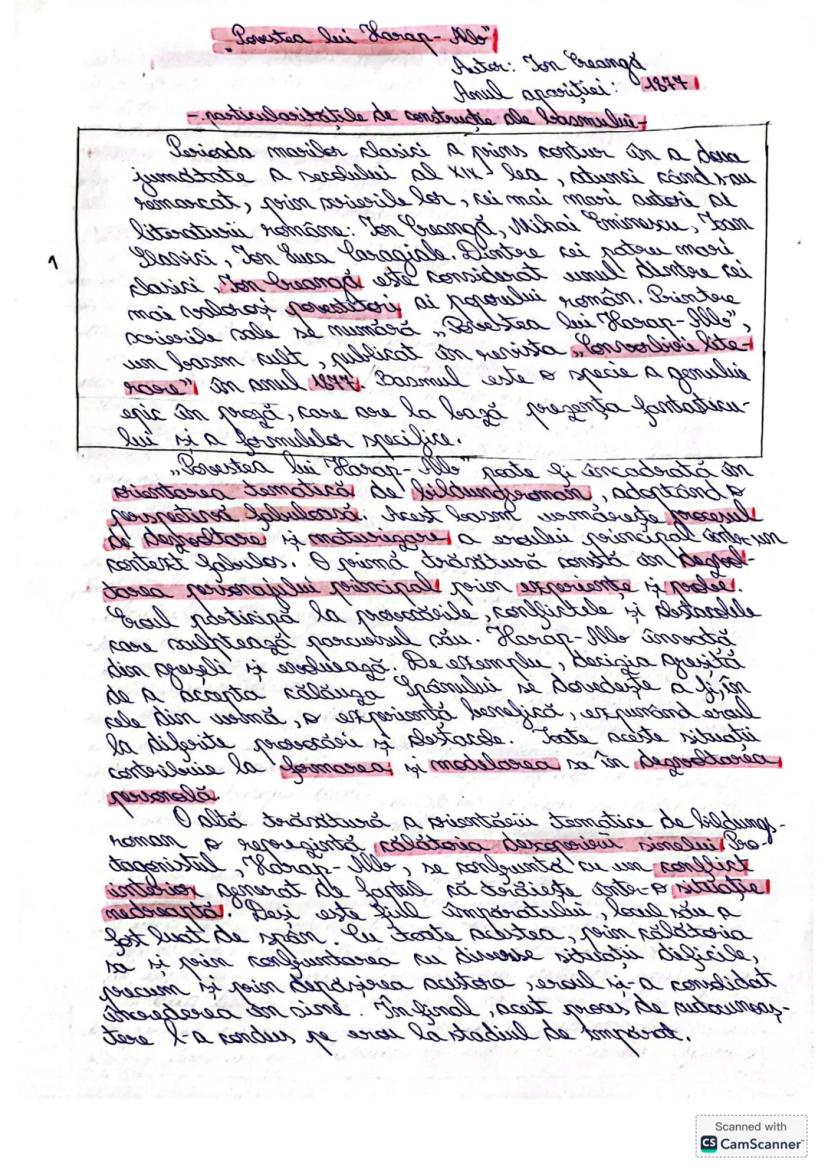 „Povestea lui Harap-Alb"
Autor: Ion Creangă
Anul apariției: 1877
- particularitățile de construcție ale basmului -
Perioada marilor clasici a prins contur în a doua
jumătate a secolului al XIX-lea, atunci când s-au
remarcat, prin scrierile lor, cei mai mari autori ai
literaturii române: Ion Creangă, Mihai Eminescu, Ioan
Slavici, Ion Luca Caragiale. Dintre cei patru mari
1
clasici, Ion Creangă este considerat unul dintre cei
mai valoroși povestitori ai poporului român. Printre
scrierile sale se numără „Povestea lui Harap-Alb",
un basm cult, publicat în revista „Convorbiri lite-
rare" în anul 1877. Basmul este o specie a genului
epic în proză, care are la bază prezența fantasticu-
lui și a formulelor specifice.
„Povestea lui Harap-Alb" poate fi încadrată în
orientarea tematică de bildungsroman, adoptând o
perspectivă fabuloasă. Acest basm urmărește procesul
de dezvoltare și maturizare a eroului principal într-un
context fabulos. O primă trăsătură constă în dezvol-
tarea personajului principal prin experiențe și probe.
Eroul participă la provocările, conflictele și obstacolele
care sculptează parcursul său. Harap-Alb învață
din greșeli și evoluează. De exemplu, decizia greșită
de a accepta călăuza Spânului se dovedește a fi, în
cele din urmă, o experiență benefică, expunând eroul
la diferite provocări și obstacole. Toate aceste situații
contribuie la formarea și modelarea sa în dezvoltarea
personală.
O altă trăsătură a orientării tematice de bildungs-
roman o reprezintă călătoria descoperirii sinelui. Pro-
tagonistul, Harap-Alb, se confruntă cu un conflict
interior generat de faptul că trăiește într-o situație
nedreaptă. Deși este fiul împăratului, locul său a
fost luat de spân. Cu toate acestea, prin călătoria
sa și prin confruntarea cu diverse situații dificile,
precum și prin depășirea acestora, eroul și-a consolidat
încrederea în sine. În final, acest proces de autocunoaș-
tere l-a condus pe erou la stadiul de împărat.
Scanned with
CS CamScanner